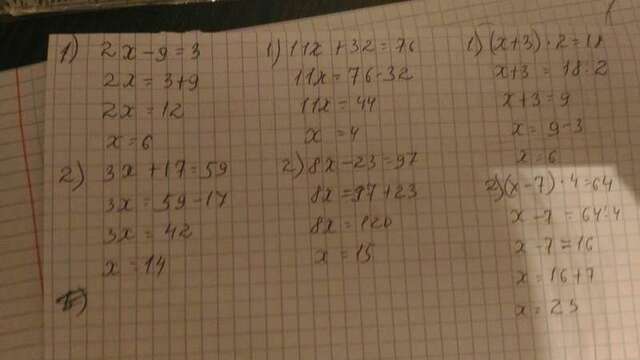 1) 2x-9=3
2x=3+9
2x=12
x=6
2) 3x+17=59
3x=59-17
3x=42
x=14
1) 11x+32=76
11x=76-32
11x=44
x=4
2) 8x-23=97
8x=97+23
8x=120
x=15
1) (x+3)·2=18
x+3=18:2
x+3=9
x=9-3
x=6
2) (x-7)·4=64
x-7=64:4
x-7=16
x=16+7
x=23